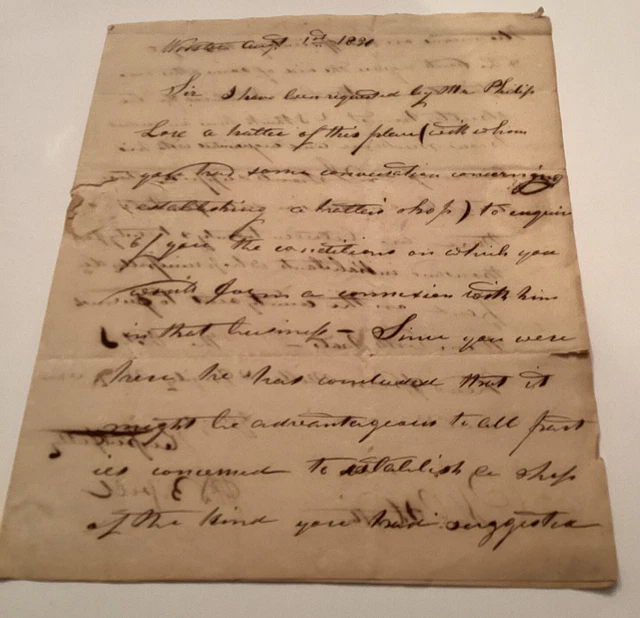 Wooster Augt 1st 18
Sir I have been requested by Mr Philip
Lore a hatter of this place (with whom
you had some conversation concerning
establishing a hatter's shop) to enquire
of you the conditions on which you
would form a connexion with him
in that business – Since you were
here he has concluded that it
might be advantageous to all part
ies concerned to establish a shop
of the kind you had suggested